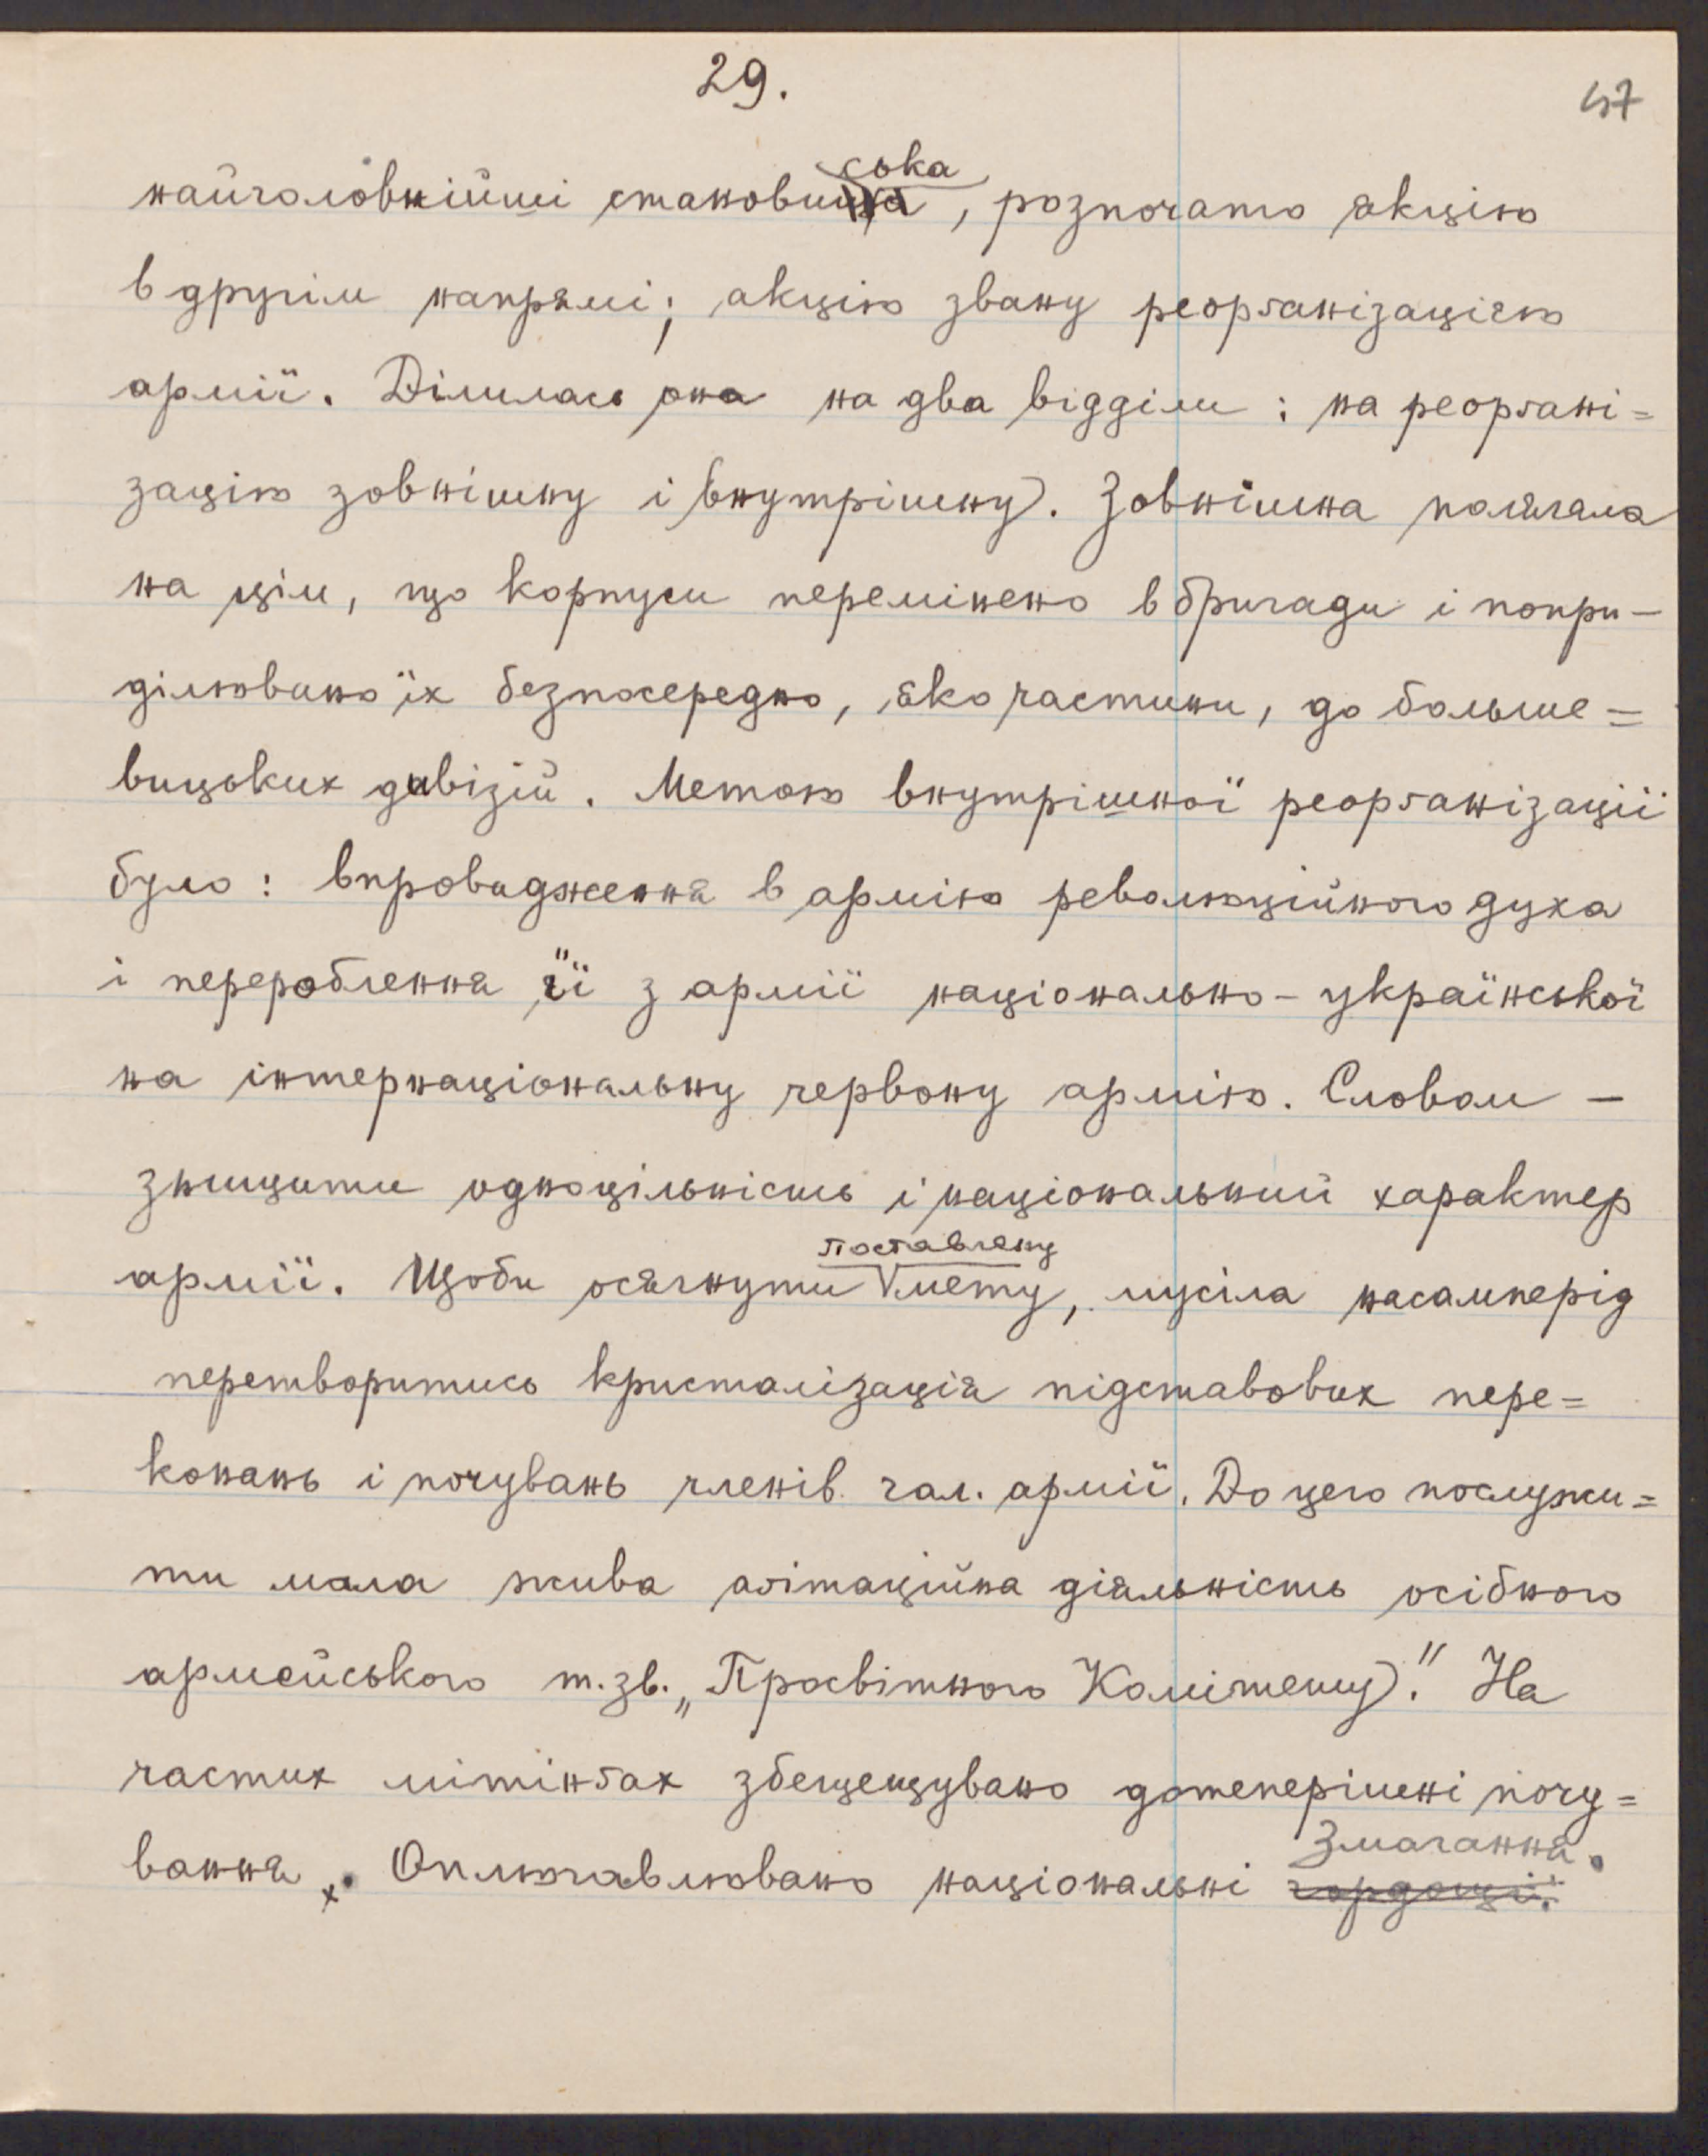 29.
47
ська
найголовнійші становища, розпочато акцію
в другім напрямі; акцію звану реорґанізацією
армії. Ділилась она на два відділи: на реорґані=
зацію зовнішну і внутрішну). Зовнішна полягала
на цім, що корпуси перемінено в бриґади і попри-
ділювано їх безпосередно, яко частини, до больше=
вицьких дивізій. Метою внутрішної реорґанізації
було: впровадження в армію революційного духа
і перероблення її з армії національно-української
на інтернаціональну червону армію. Словом —
знищити одноцільність і національний характер
поставлену
армії. Щоби осягнути мету, мусіла насамперід
перетворитись кристалізація підставових пере=
конань і почувань членів гал. армії. До цего послужи=
ти мала жива аґітаційна діяльність осібного
армейського т.зв. „Просвітного Комітету)." На
частих мітінґах збещещувано дотеперішні почу=
Змагання.
вання. Оплюгавлювано національні гордощі.